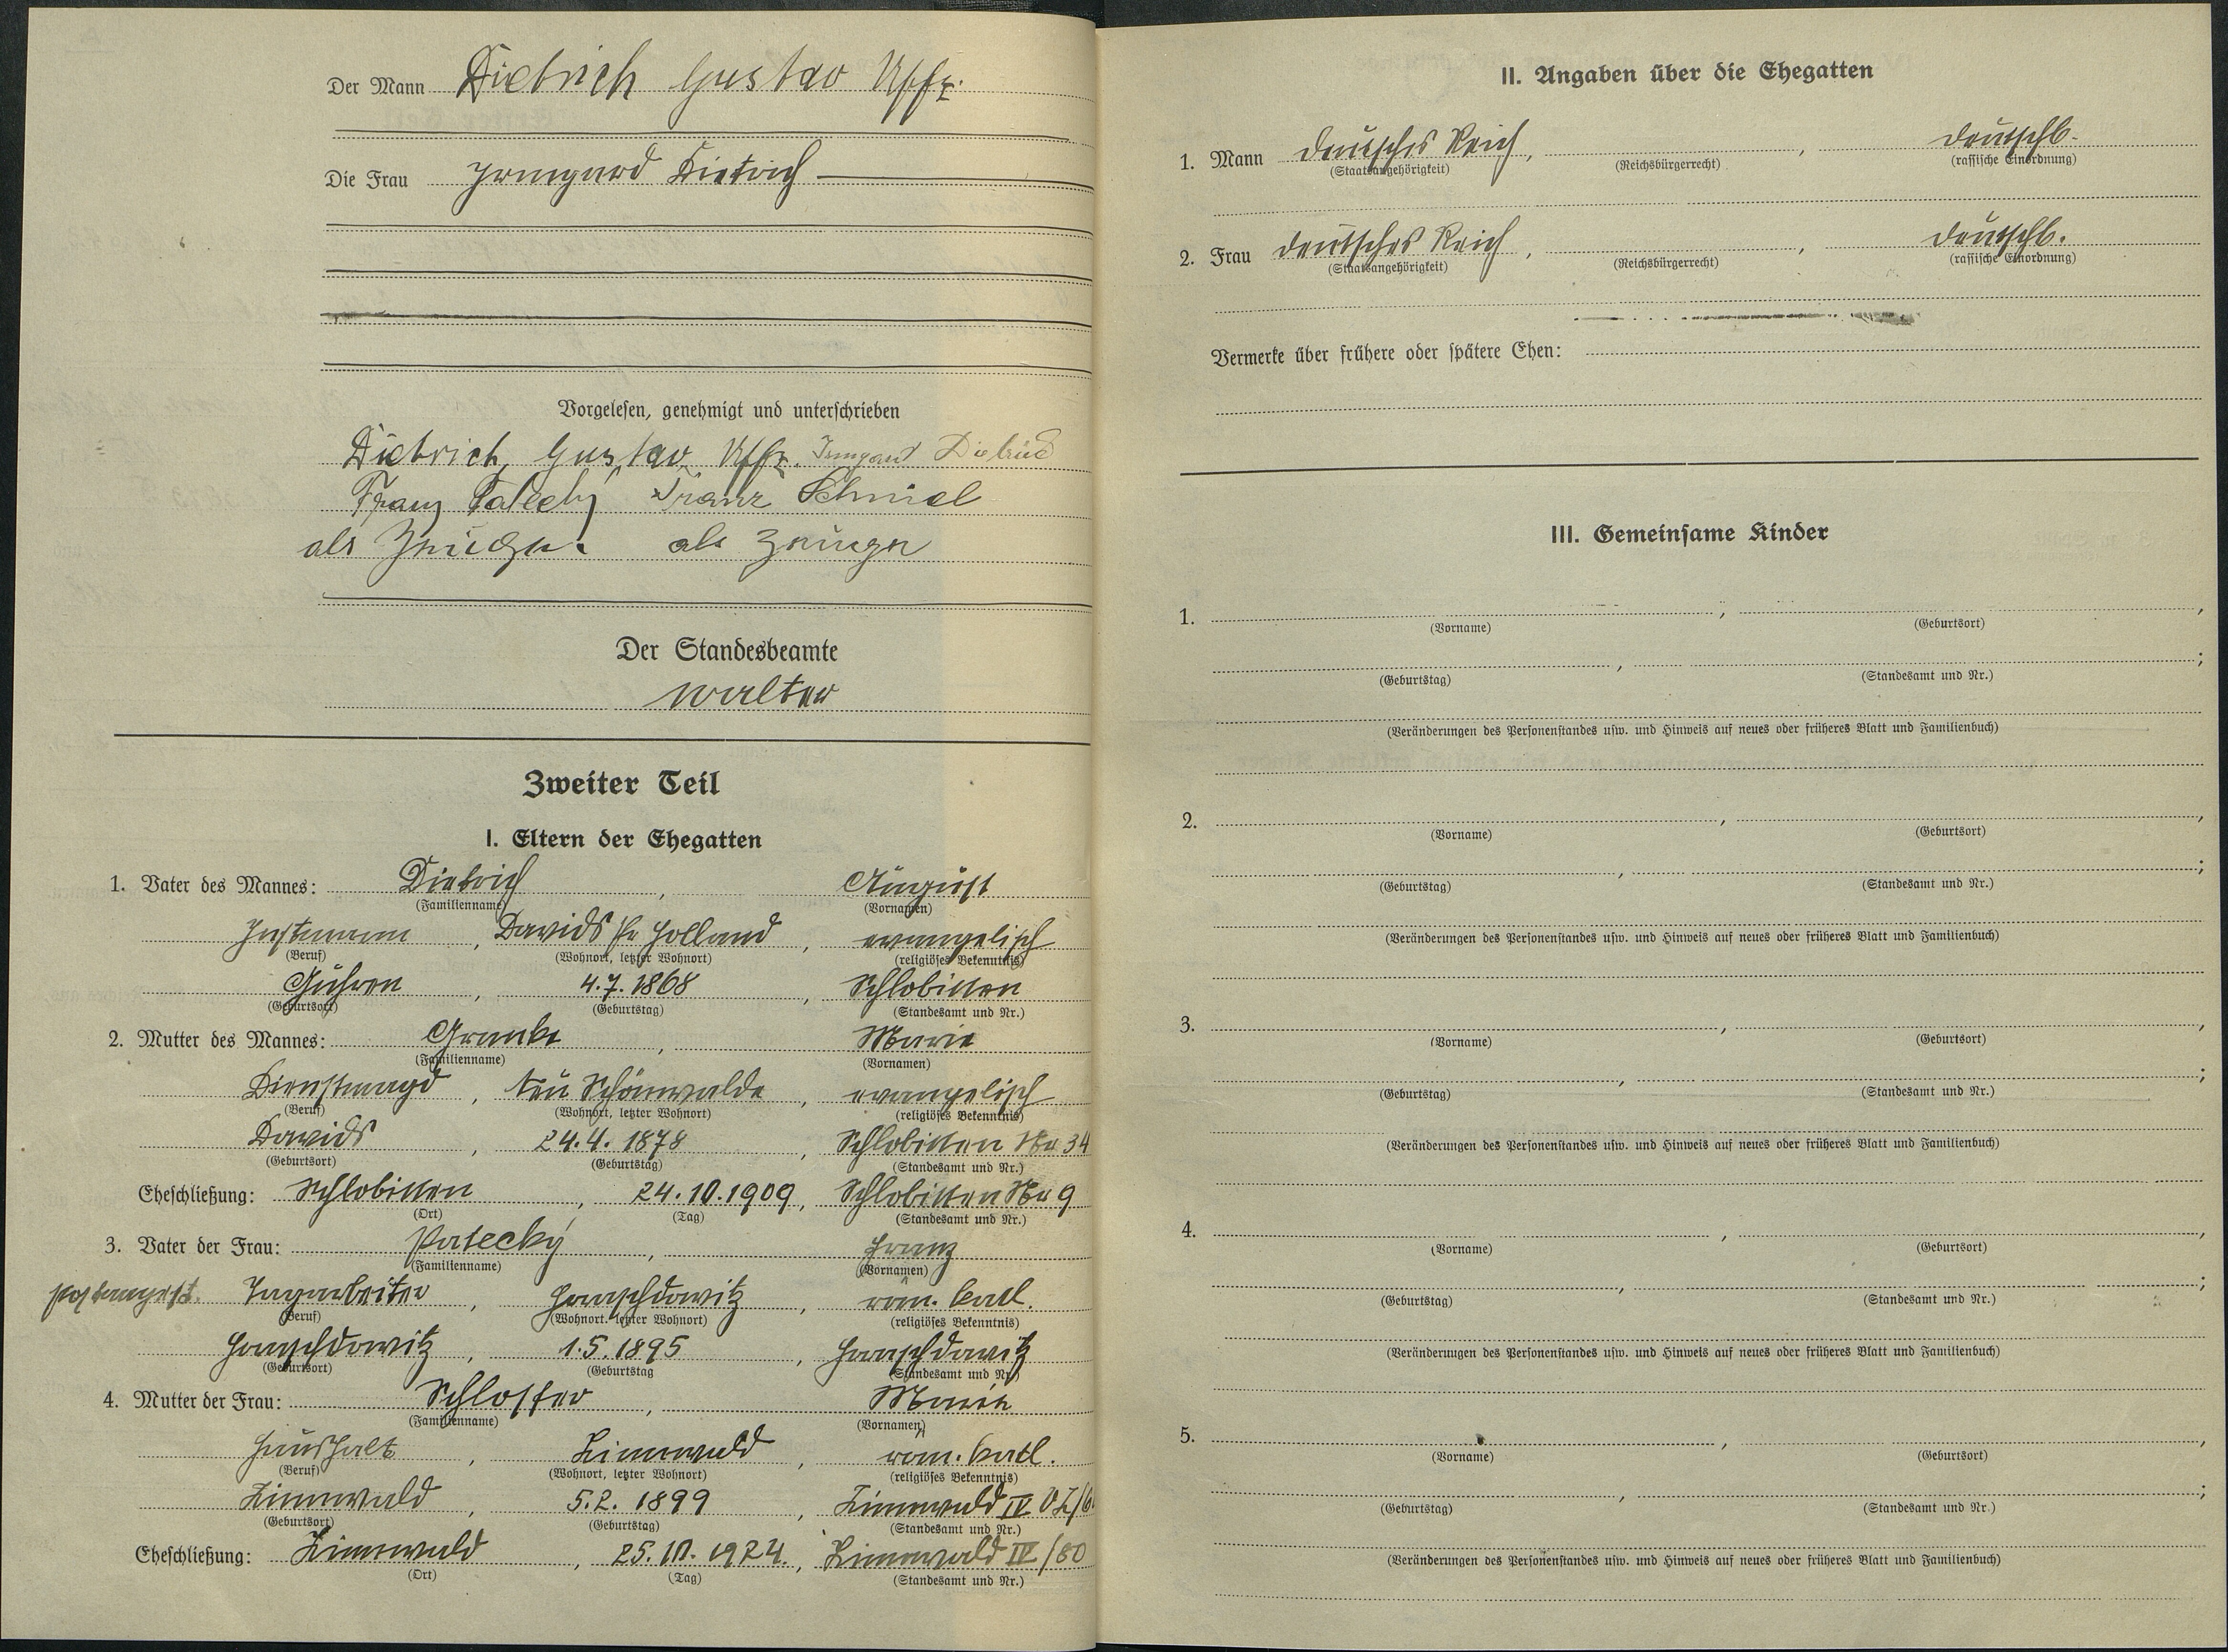 Der Mann Dietrich Gustav Uffz.
Die Frau Irmgard Dietrich
Vorgelesen, genehmigt und unterschrieben
Dietrich, Gustav Uffz. Irmgard Dietrich
Franz Patecky Franz Schmiel
als Zeuge. als Zeuge
Der Standesbeamte
Walter
Zweiter Teil
I. Eltern der Ehegatten
1. Vater des Mannes: Dietrich, August
(Familienname) (Vornamen)
Instmann, Davids Pr Holland, evangelisch
(Beruf) (Wohnort, letzter Wohnort) (religiöses Bekenntnis)
Guhren, 4.7.1868, Schlobitten
(Geburtsort) (Geburtstag) (Standesamt und Nr.)
2. Mutter des Mannes: Marie
(Familienname) (Vornamen)
Dienstmagd, Neu Schönwalde, evangelisch
(Beruf) (Wohnort, letzter Wohnort) (religiöses Bekenntnis)
Davids, 24.4.1878, Schlobitten Nr 34
(Geburtsort) (Geburtstag) (Standesamt und Nr.)
Eheschließung: Schlobitten, 24.10.1909, Schlobitten Nr 9
(Ort) (Tag) (Standesamt und Nr.)
3. Vater der Frau: Patecky, Franz
(Familienname) (Vornamen)
Postangest. , röm. kath.
(Beruf) (Wohnort, letzter Wohnort) (religiöses Bekenntnis)
, 1.5.1895,
(Geburtsort) (Geburtstag (Standesamt und Nr.)
4. Mutter der Frau: Schlosser, Marie
(Familienname) (Vornamen)
Haushalt, Zinnwald, röm. kath.
(Beruf) (Wohnort, letzter Wohnort) (religiöses Bekenntnis)
Zinnwald, 5.2.1899, Zinnwald IV
(Geburtsort) (Geburtstag) (Standesamt und Nr.)
Eheschließung: Zinnwald, 1924., Zinnwald IV/80
(Ort) (Tag) (Standesamt und Nr.)
II. Angaben über die Ehegatten
1. Mann deutsches Reich, , deutschb.
(Staatsangehörigkeit) (Reichsbürgerrecht) (rassische Einordnung)
2. Frau deutsches Reich, , deutschb.
(Staatsangehörigkeit) (Reichsbürgerrecht) (rassische Einordnung)
Vermerke über frühere oder spätere Ehen:
III. Gemeinsame Kinder
1. , ,
(Vorname) (Geburtsort)
, ;
(Geburtstag) (Standesamt und Nr.)
(Veränderungen des Personenstandes usw. und Hinweis auf neues oder früheres Blatt und Familienbuch)
2. , ,
(Vorname) (Geburtsort)
, ;
(Geburtstag) (Standesamt und Nr.)
(Veränderungen des Personenstandes usw. und Hinweis auf neues oder früheres Blatt und Familienbuch)
3. , ,
(Vorname) (Geburtsort)
, ;
(Geburtstag) (Standesamt und Nr.)
(Veränderungen des Personenstandes usw. und Hinweis auf neues oder früheres Blatt und Familienbuch)
4. , ,
(Vorname) (Geburtsort)
, ;
(Geburtstag) (Standesamt und Nr.)
(Veränderungen des Personenstandes usw. und Hinweis auf neues oder früheres Blatt und Familienbuch)
5. , ,
(Vorname) (Geburtsort)
, ;
(Geburtstag) (Standesamt und Nr.)
(Veränderungen des Personenstandes usw. und Hinweis auf neues oder früheres Blatt und Familienbuch)